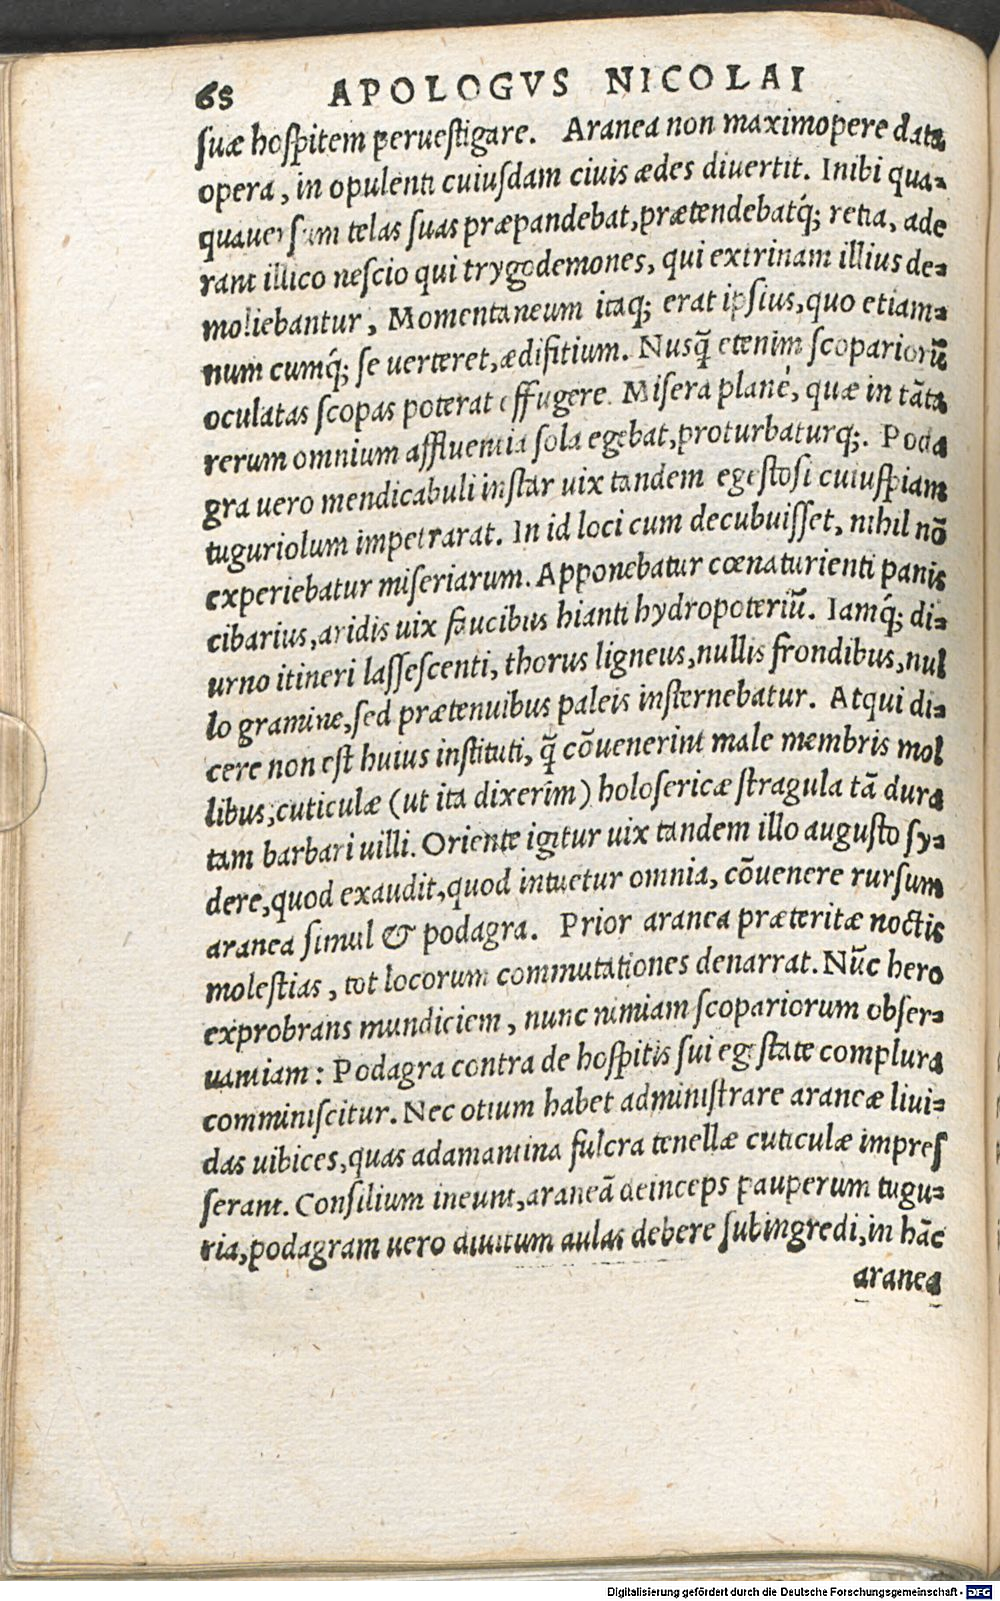 68 APOLOGVS NICOLAI
ſuæ hoſpitem perueſtigare. Aranea non maximopere data
opera, in opulenti cuiuſdam ciuis ædes diuertit. Inibi qua-
quauerſum telas ſuas præpandebat, prætendebatq́; retia, ade
rant illico neſcio qui trygodemones, qui extrinam illius de-
moliebantur, Momentaneum itaq; erat ipſius, quo etiam-
num cumq́; ſe uerteret, ædifitium. Nusq̄ etenim ſcopariorū
oculatas ſcopas poterat effugere. Miſera planè, quæ in tāta
rerum omnium affluentia ſola egebat, proturbaturq;. Poda
gra uero mendicabuli inſtar uix tandem egeſtoſi cuiuſpiam
tuguriolum impetrarat. In id loci cum decubuiſſet, nihil nō
experiebatur miſeriarum. Apponebatur cœnaturienti panis
cibarius, aridis uix faucibus hianti hydropoteriū. Iamq́; di-
urno itineri laſſeſcenti, thorus ligneus, nullis frondibus, nul
lo gramine, ſed prætenuibus paleis inſternebatur. Atqui di-
cere non eſt huius inſtituti, q̄ cōuenerint male membris mol
libus, cuticulæ (ut ita dixerim) holoſericæ ſtragula tā dura
tam barbari uilli. Oriente igitur uix tandem illo auguſto ſy-
dere, quod exaudit, quod intuetur omnia, cōuenere rurſum
aranea ſimul & podagra. Prior aranea præteritæ noctis
moleſtias, tot locorum commutationes denarrat. Nūc hero
exprobrans mundiciem, nunc nimiam ſcopariorum obſer-
uantiam: Podagra contra de hoſpitis ſui egeſtate complura
comminiſcitur. Nec otium habet adminiſtrare araneæ liui-
das uibices, quas adamantina fulcra tenellæ cuticulæ impreſ
ſerant. Conſilium ineunt, araneā deinceps pauperum tugu-
ria, podagram uero diuitum aulas debere ſubingredi, in hāc
aranea
Digitalisierung gefördert durch die Deutsche Forschungsgemeinschaft - DFG